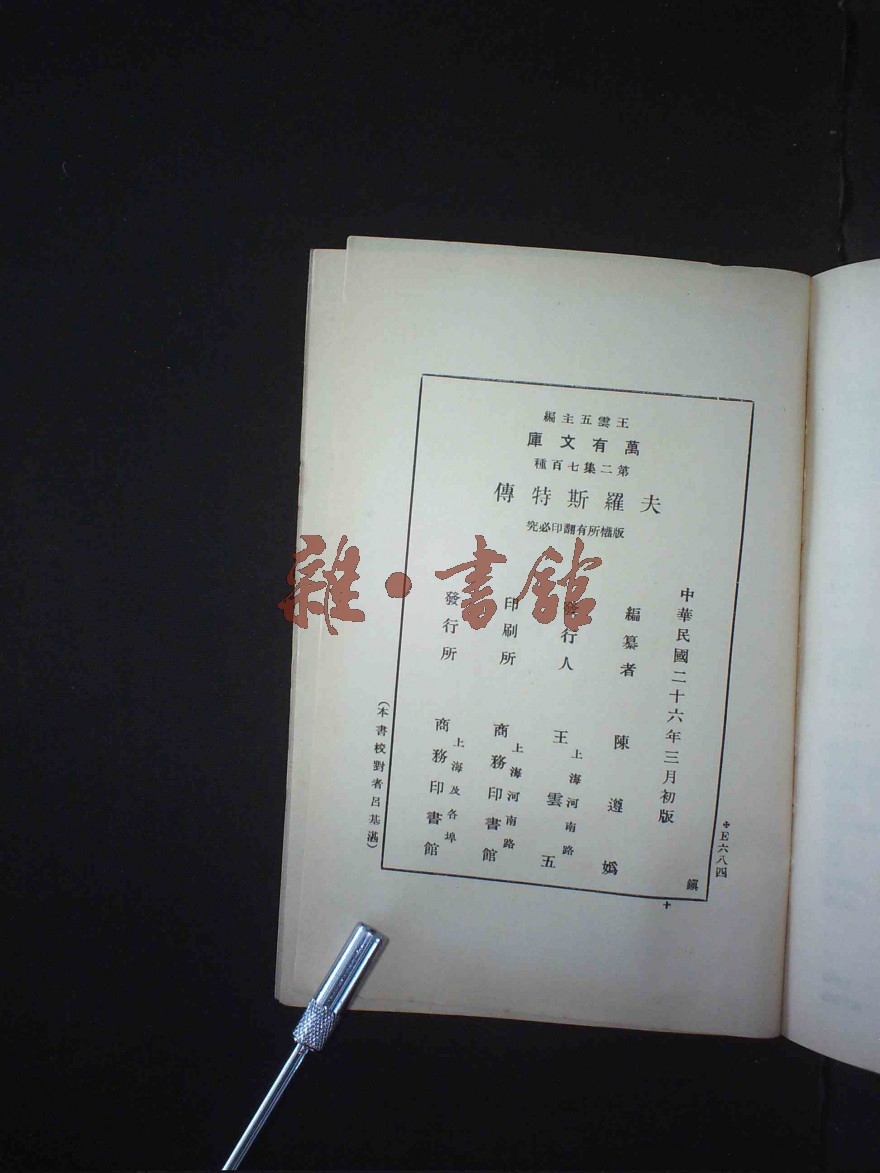 王雲五主編
萬有文庫
第二集七百種
夫羅斯特傳
版權所有翻印必究
中華民國二十六年三月初版
編纂者 陳遵媯
發行人 王雲五
上海河南路
印刷所 商務印書館
上海河南路
發行所 商務印書館
上海及各埠
(本書校對者呂基湛)
E六八四
鎭
雜·書館